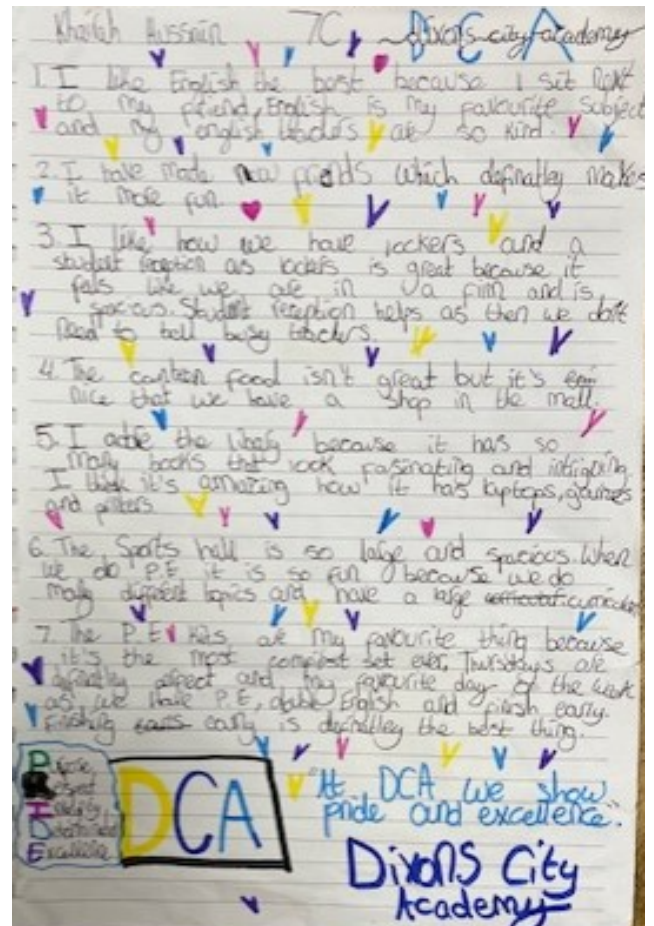 Hussnin 7C D C A Dixons city academy
1. I like English the best because I sit next
to my friend, English is my favourite subject
and my english teachers are so kind.
2. I have made new friends which definatley makes
it more fun.
3. I like how we have lockers and a
student reception as lockers is great because it
fells like we are in a film and is
spacious. Student reception helps as then we don't
need to tell busy teachers.
4. The canteen food isn't great but it's
nice that we have a shop in the mall.
5. I adore the library because it has so
many books that look fasinating and intriguing
I think it's amazing how it has laptops, games
and printers.
6. The Sports hall is so large and spacious. When
we do P.E it is so fun because we do
many different topics and have a large
7. The P.E kits are my favourite thing because
it's the most set ever, Thursdays are
definatley and my favourite day of the week
as we have P.E, double English and finish early.
Finishing early is definatley the best thing.
P
Respect
I
D
Excellence
DCA
"At DCA we show
pride and excellence."
Dixons City
Academy